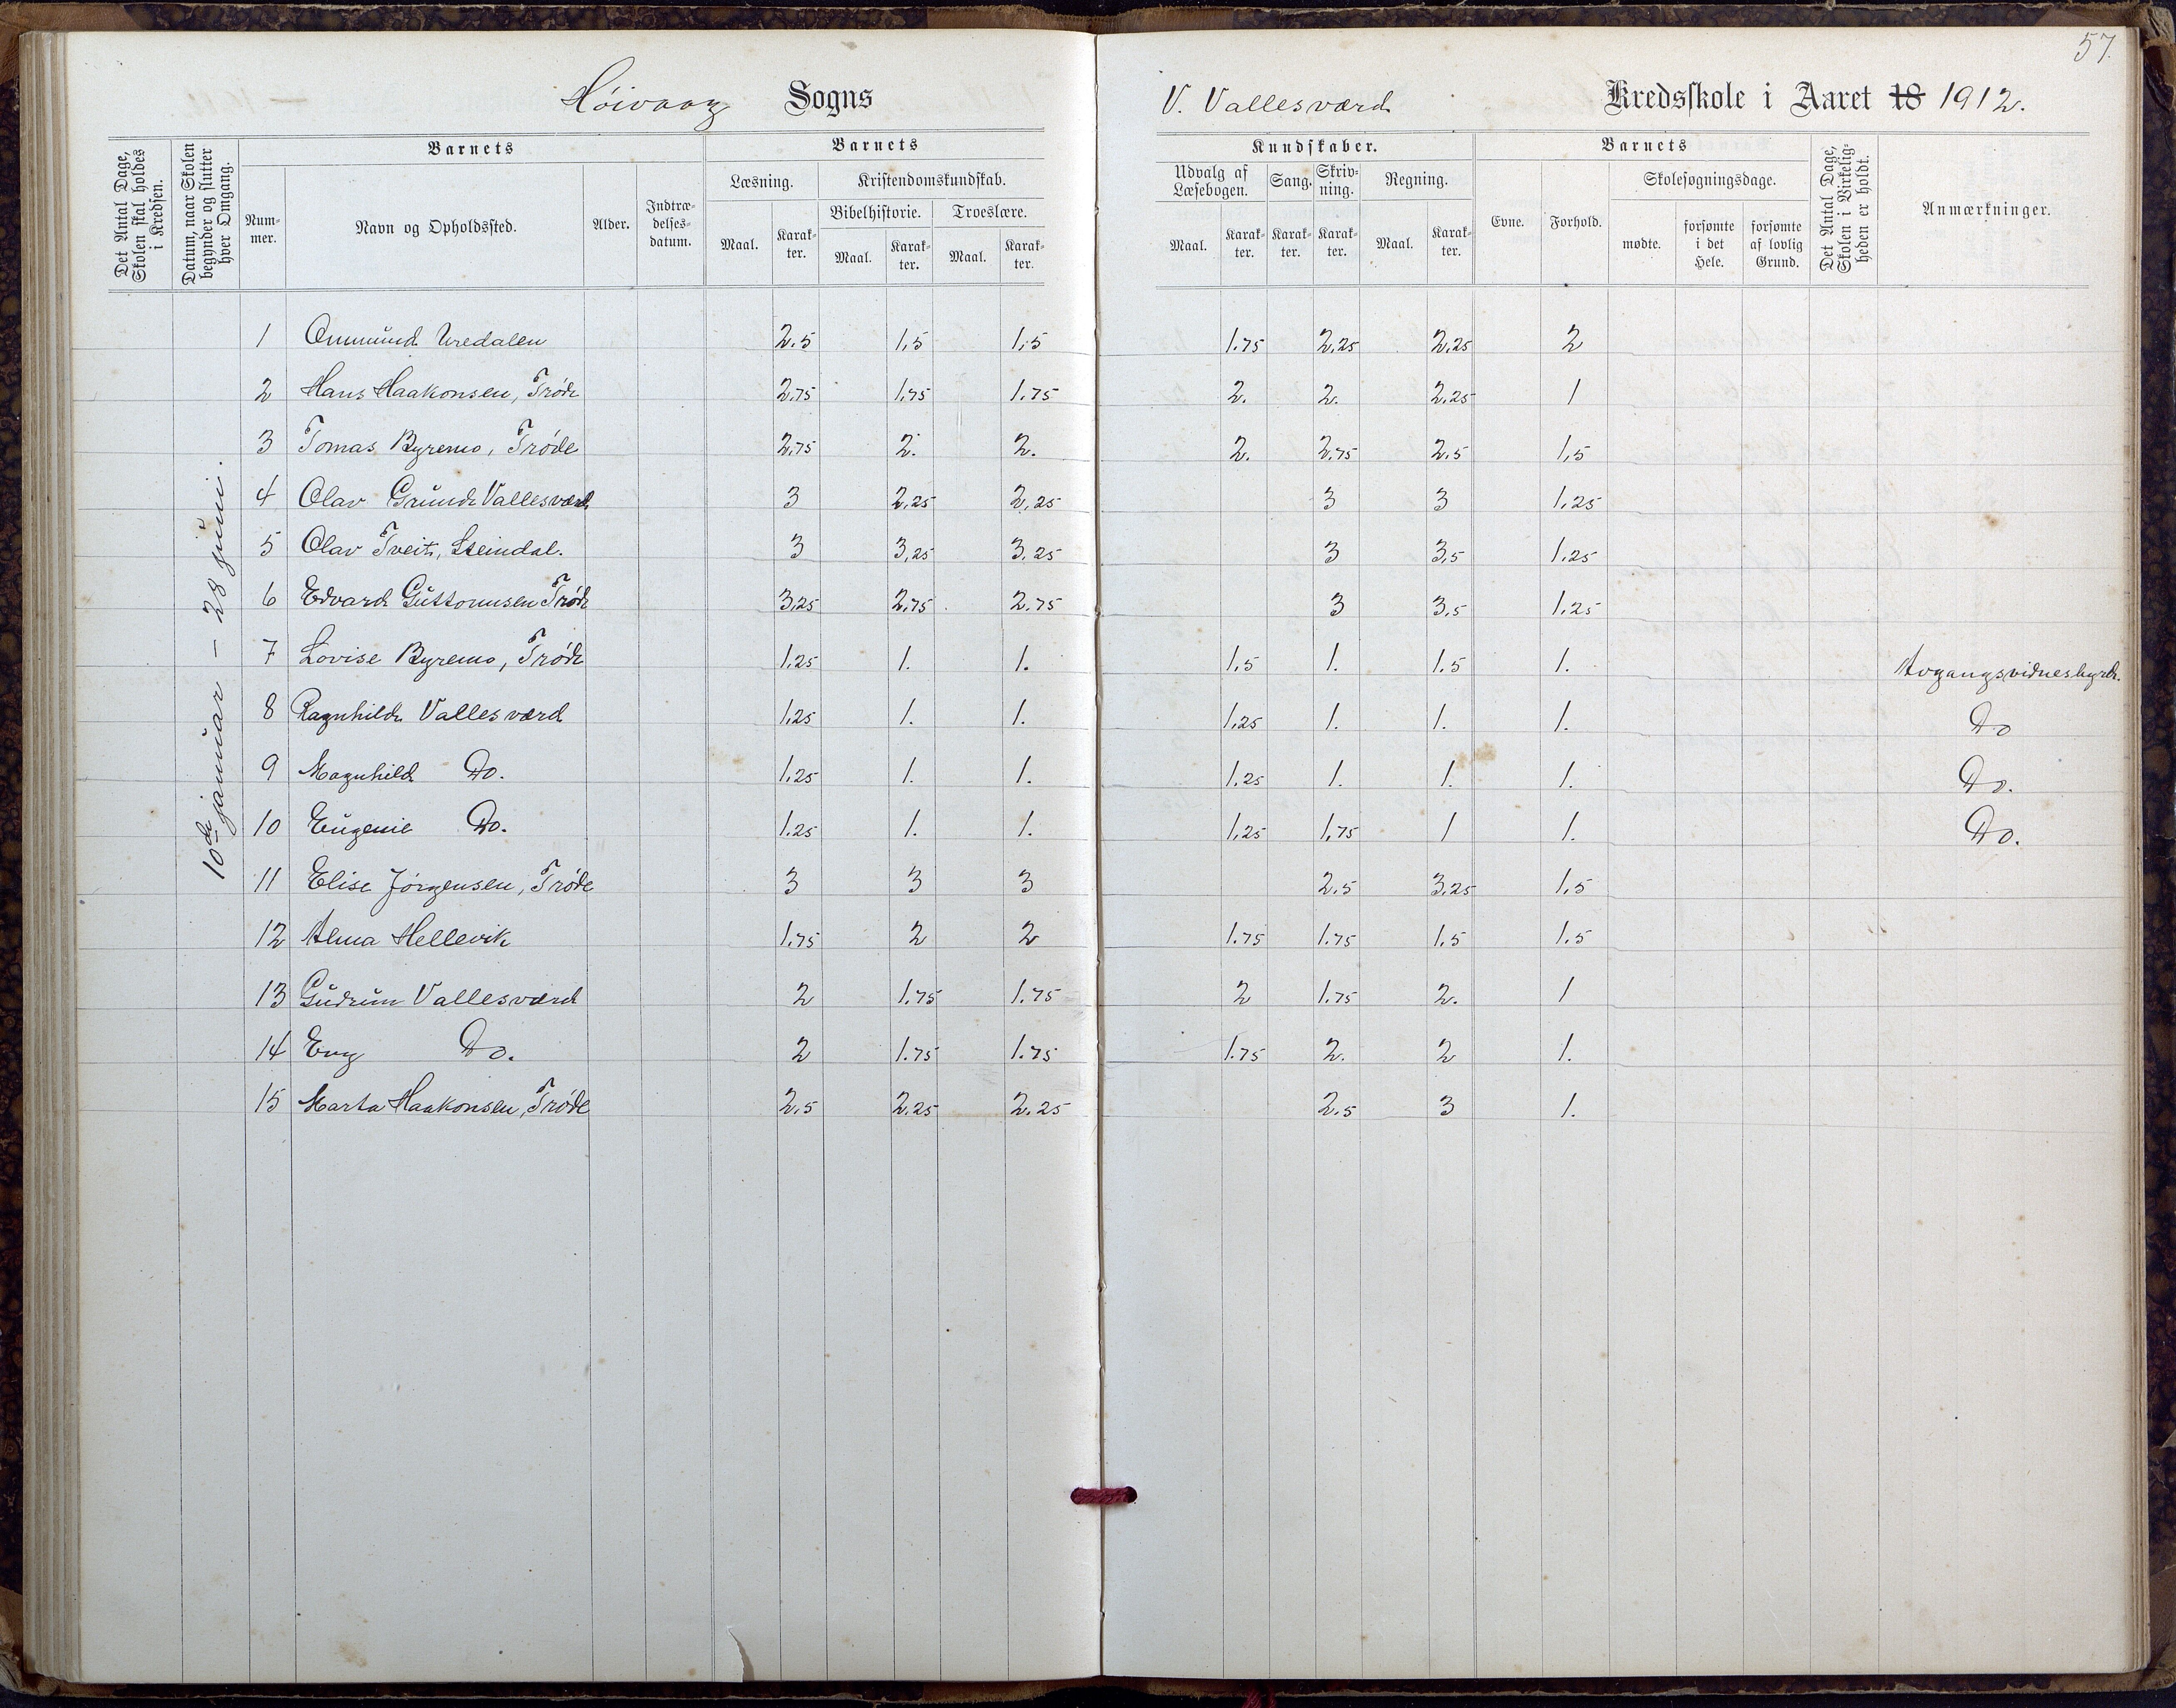 57.
Høivaag Sogns
V. Vallesværd Kredsskole i Aaret 18 1912.
Det Antal Dage, Skolen skal holdes i Kredsen.
Datum, naar Skolen begynder og slutter hver Omgang.
Barnets
Nummer.
Navn og Opholdssted.
Alder.
Indtrædelsesdatum.
Barnets
Læsning.
Kristendomskundskab.
Bibelhistorie. Troeslære.
Maal. Karakter. Maal. Karakter. Maal. Karakter.
Kundskaber.
Udvalg af Læsebogen. Sang. Skrivning. Regning.
Maal. Karakter. Karakter. Karakter. Maal. Karakter.
Barnets
Evne. Forhold.
Skolesøgningsdage.
mødte. forsømte i det Hele. forsømte af lovlig Grund.
Det Antal Dage, Skolen i Virkeligheden er holdt.
Anmærkninger.
10de januar – 28 juni.
1 Ommund Uredalen 2.5 1,5 1,5 1.75 2,25 2,25 2
2 Hans Haakonsen, Trøde 2,75 1,75 1.75 2. 2. 2,25 1
3 Tomas Byremo, Trøde 2,75 2. 2. 2. 2,75 2.5 1,5
4 Olav Grunde Vallesværd 3 2,25 2,25 3 3 1,25
5 Olav Tveit, Steindal. 3 3,25 3,25 3 3,5 1.25
6 Edvard Guttormsen Trøde 3,25 2,75 2.75 3 3,5 1,25
7 Lovise Byremo, Trøde 1,25 1. 1. 1,5 1. 1.5 1. Avgangsvidnesbyrd.
8 Ragnhild Vallesværd 1,25 1. 1. 1,25 1. 1. 1. Do
9 Magnhild Do. 1,25 1. 1. 1.25 1. 1. 1. Do.
10 Eugenie Do. 1.25 1. 1. 1,25 1,75 1 1. Do.
11 Elise Jørgensen, Trøde 3 3 3 2.5 3,25 1,5
12 Alma Hellevik 1,75 2 2 1.75 1.75 1.5 1.5
13 Gudrun Vallesværd 2 1.75 1.75 2 1.75 2. 1
14 Eng Do. 2 1.75 1.75 1.75 2. 2 1.
15 Marta Haakonsen, Trøde 2.5 2.25 2.25 2.5 3 1.